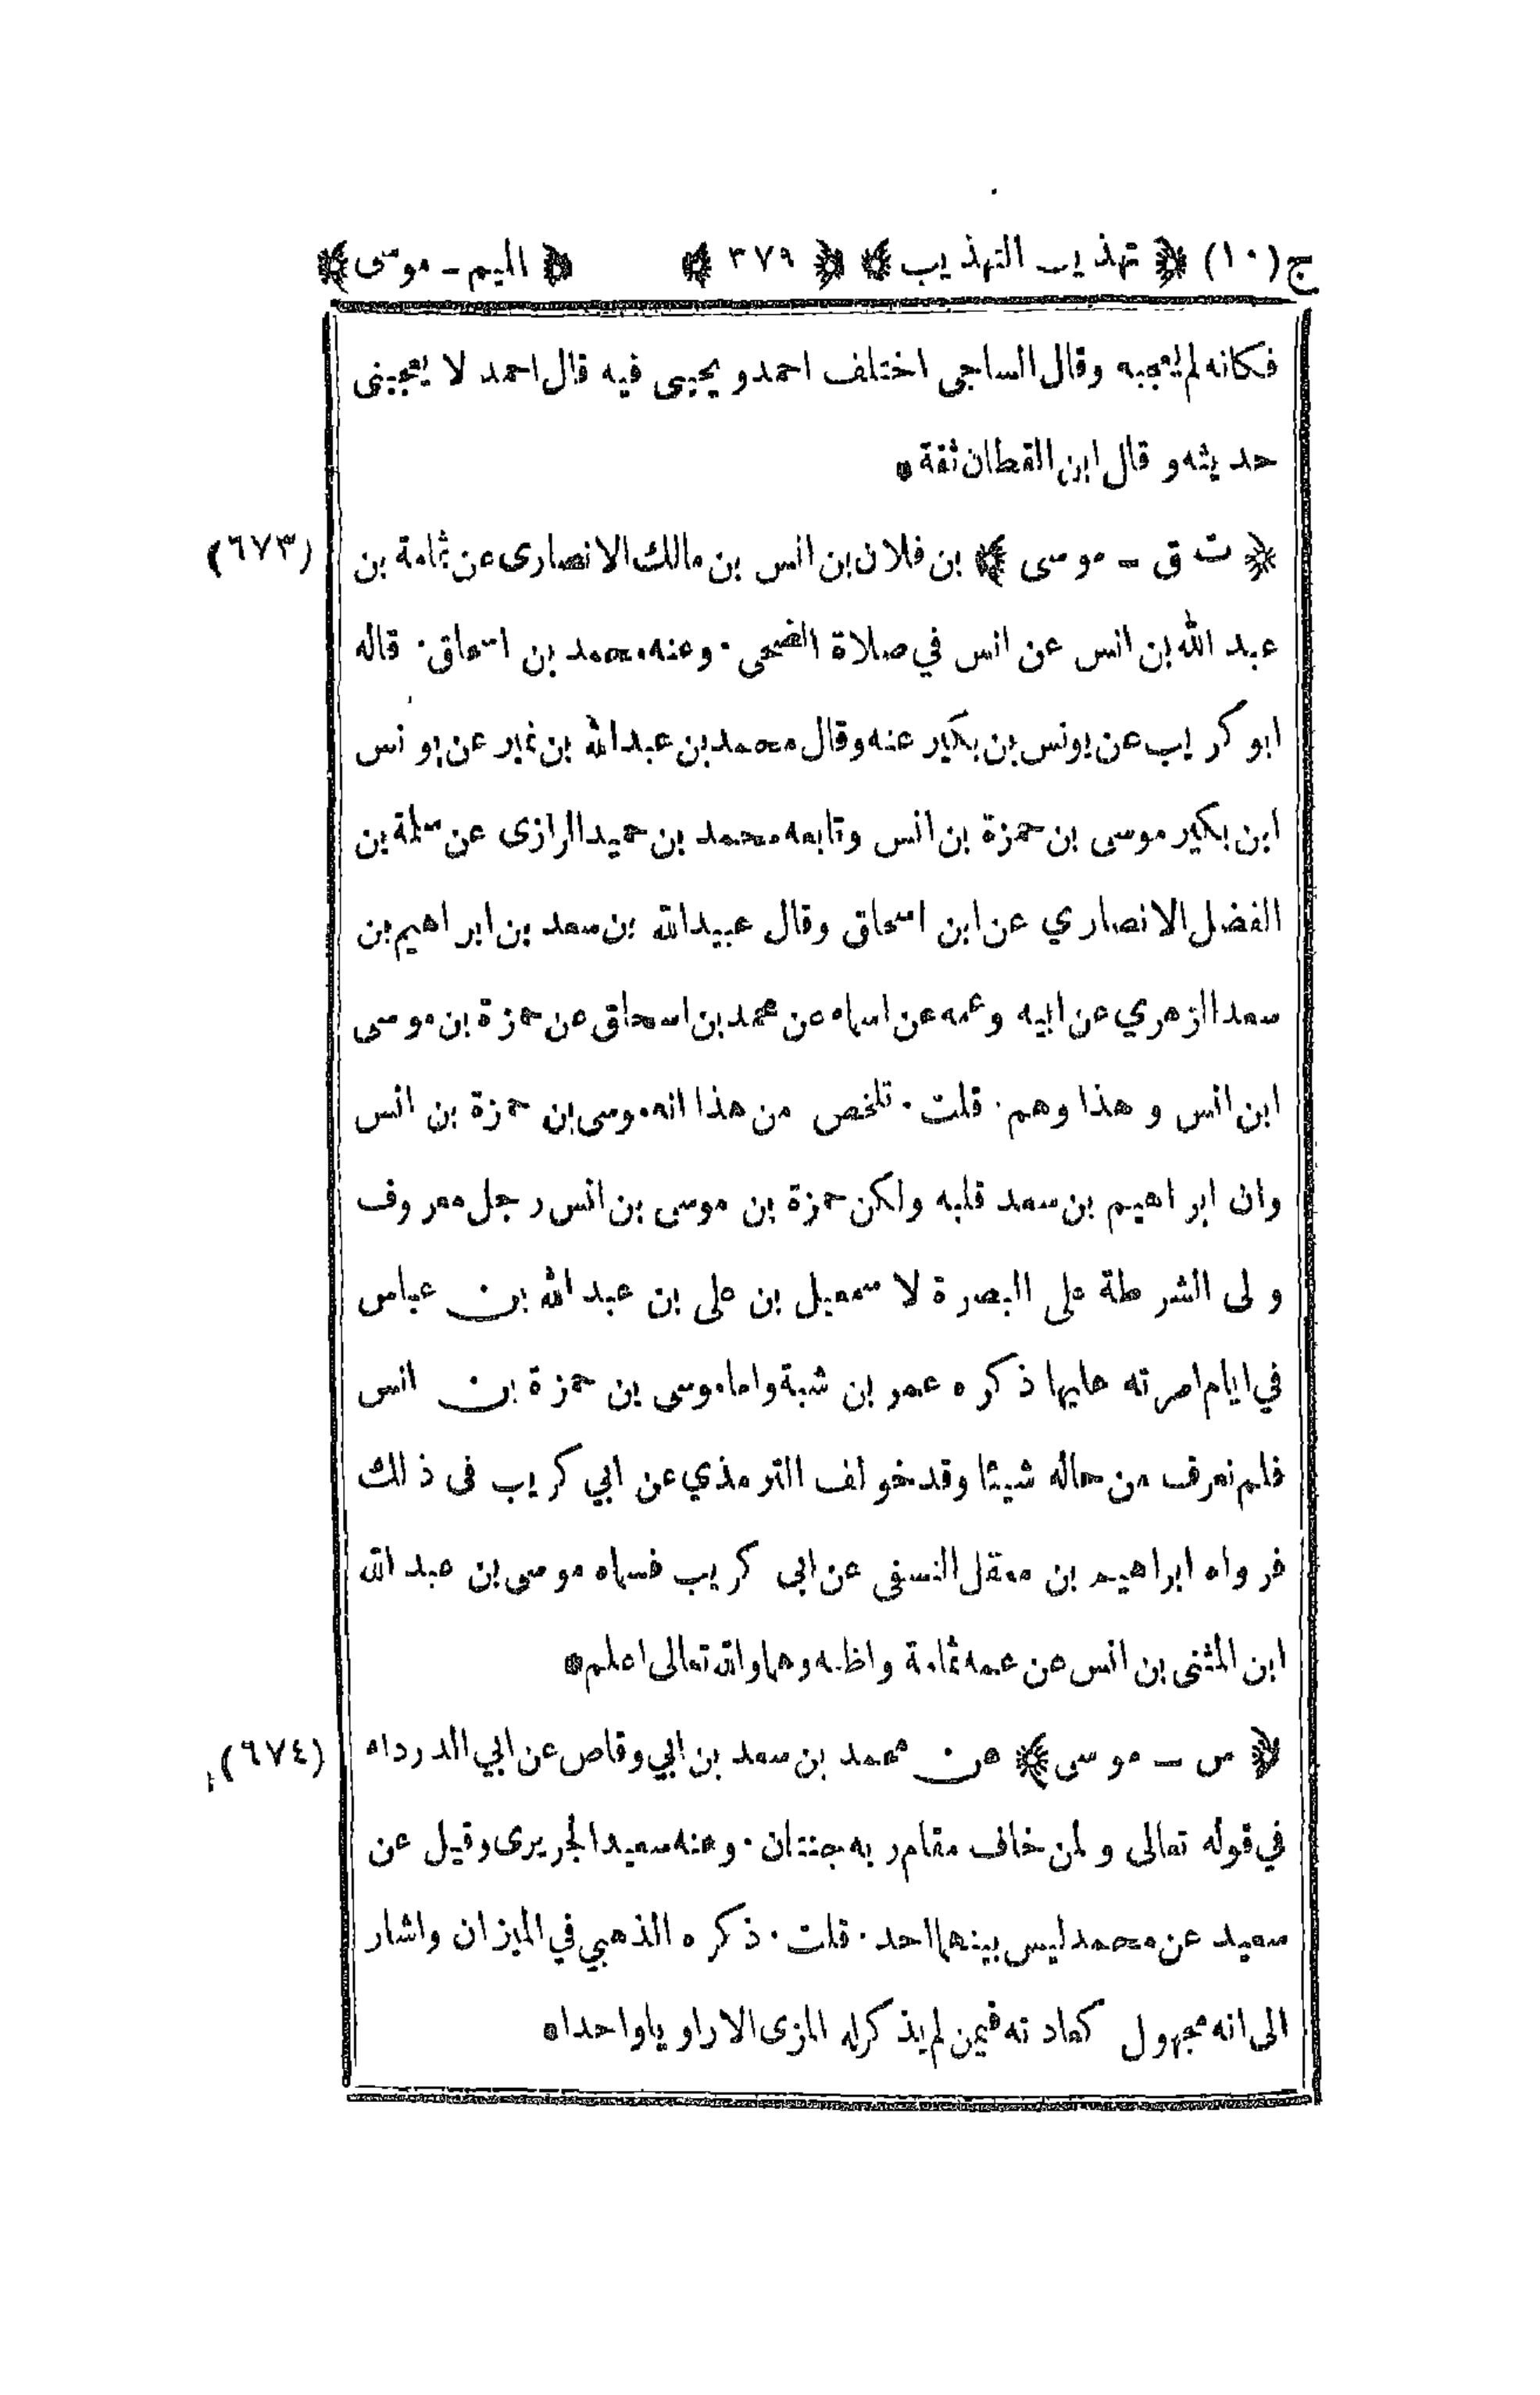 ج (١٠) ﴿ تهذيب التهذيب ﴾ ﴿ ٣٧٩ ﴾ ﴿ الميم - موسى ﴾
فكانه لم يعجبه وقال الساجى اختلف احمد و يحيى فيه قال احمد لا يعجبنى
حديثه و قال ابن القطان ثقة *
﴿ ت ق - موسى ﴾ بن فلان بن انس بن مالك الانصارى عن ثمامة بن (٦٧٣)
عبد الله بن انس عن انس في صلاة الضحى . وعنه محمد بن اسحاق . قاله
ابو كريب عن يونس بن بكير عنه وقال محمد بن عبد الله بن نمير عن يونس
ابن بكير موسى بن حمزة بن انس وتابعه محمد بن حميد الرازى عن سلمة بن
الفضل الانصاري عن ابن اسحاق وقال عبيد الله بن سعد بن ابراهيم بن
سعد الزهري عن ابيه وعمه عن اسماه عن محمد بن اسحاق عن حمزة بن موسى
ابن انس و هذا وهم . قلت . تلخص من هذا انه موسى بن حمزة بن انس
وان ابراهيم بن سعد قلبه ولكن حمزة بن موسى بن انس رجل معروف
ولى الشرطة على البصرة لاسمعيل بن على بن عبد الله بن عباس
في ايام امرته عليها ذكره عمر بن شبة واما موسى بن حمزة بن انس
فلم نعرف من حاله شيئا وقد خولف الترمذي عن ابي كريب فى ذلك
فرواه ابراهيم بن معقل النسفى عن ابى كريب فسماه موسى بن عبد الله
ابن المثنى بن انس عن عمه ثمامة واظنه وهما والله تعالى اعلم *
﴿ س - موسى ﴾ عن محمد بن سعد بن ابي وقاص عن ابي الدرداء (٦٧٤)
في قوله تعالى و لمن خاف مقام ربه جنتان . وعنه سعيد الجريرى وقيل عن
سعيد عن محمد ليس بينهما احد . قلت . ذكره الذهبي في الميزان واشار
الى انه مجهول كعادته فيمن لم يذكر له المزى الا راويا واحدا *